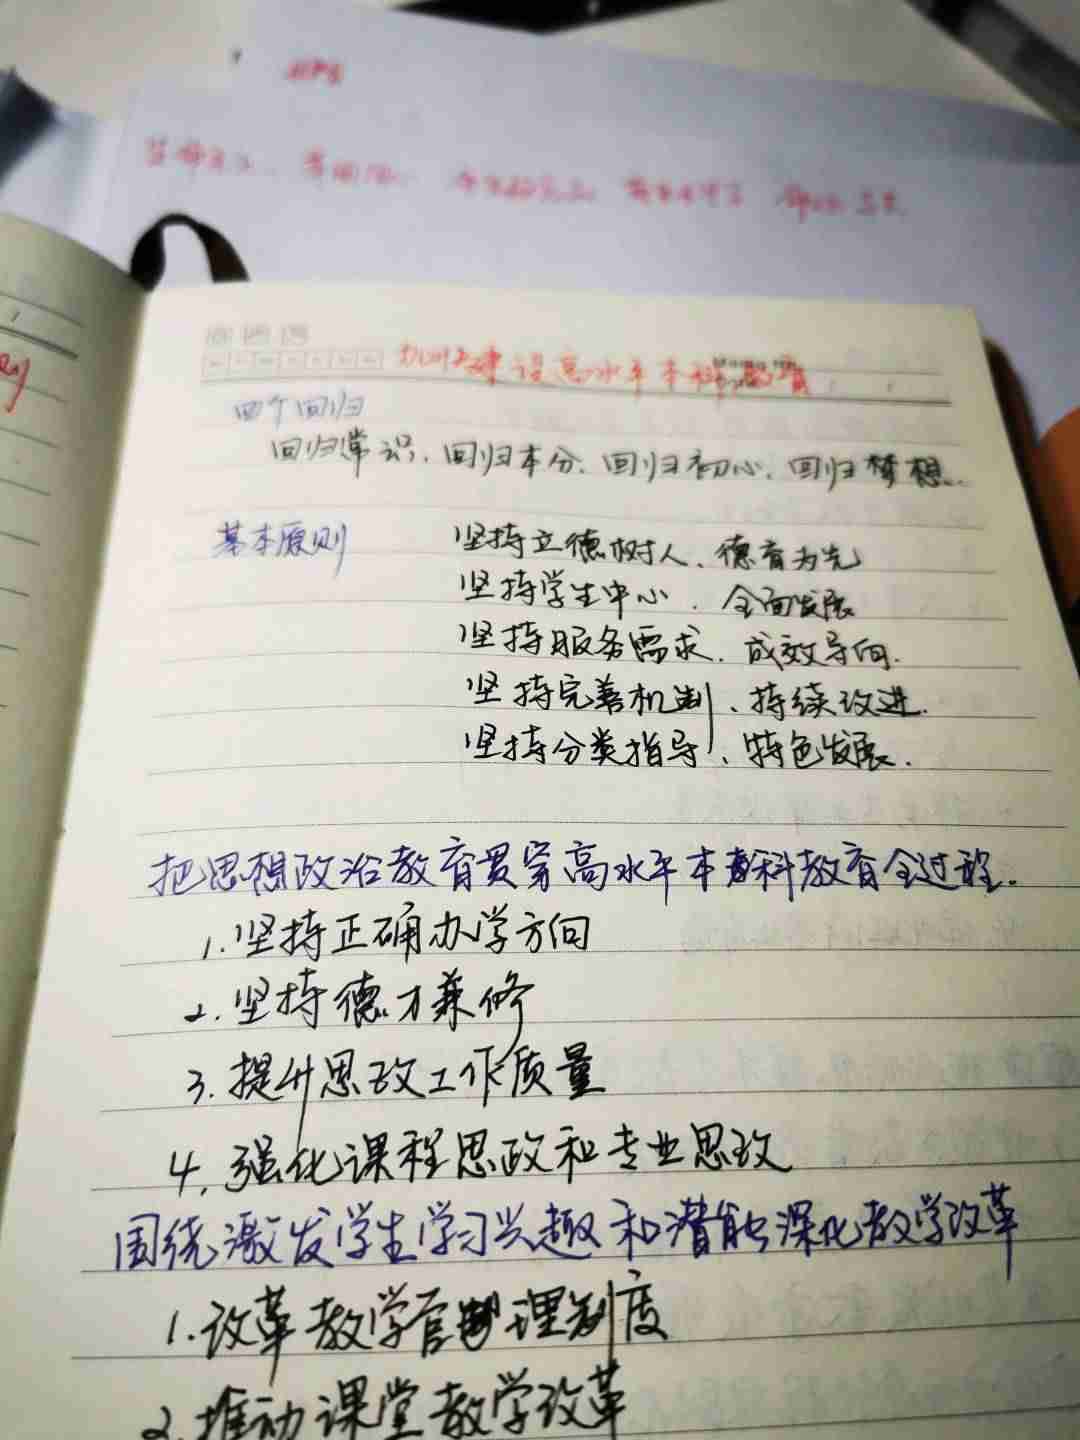 加快建设高水平本科教育
四个回归
回归常识、回归本分、回归初心、回归梦想.
基本原则 坚持立德树人、德育为先
坚持学生中心、全面发展
坚持服务需求、成效导向.
坚持完善机制、持续改进.
坚持分类指导、特色发展.
把思想政治教育贯穿高水平本科教育全过程.
1.坚持正确办学方向
2.坚持德才兼修
3.提升思政工作质量
4.强化课程思政和专业思政
围绕激发学生学习兴趣和潜能深化教学改革
1.改革教学管理制度
2.推动课堂教学改革